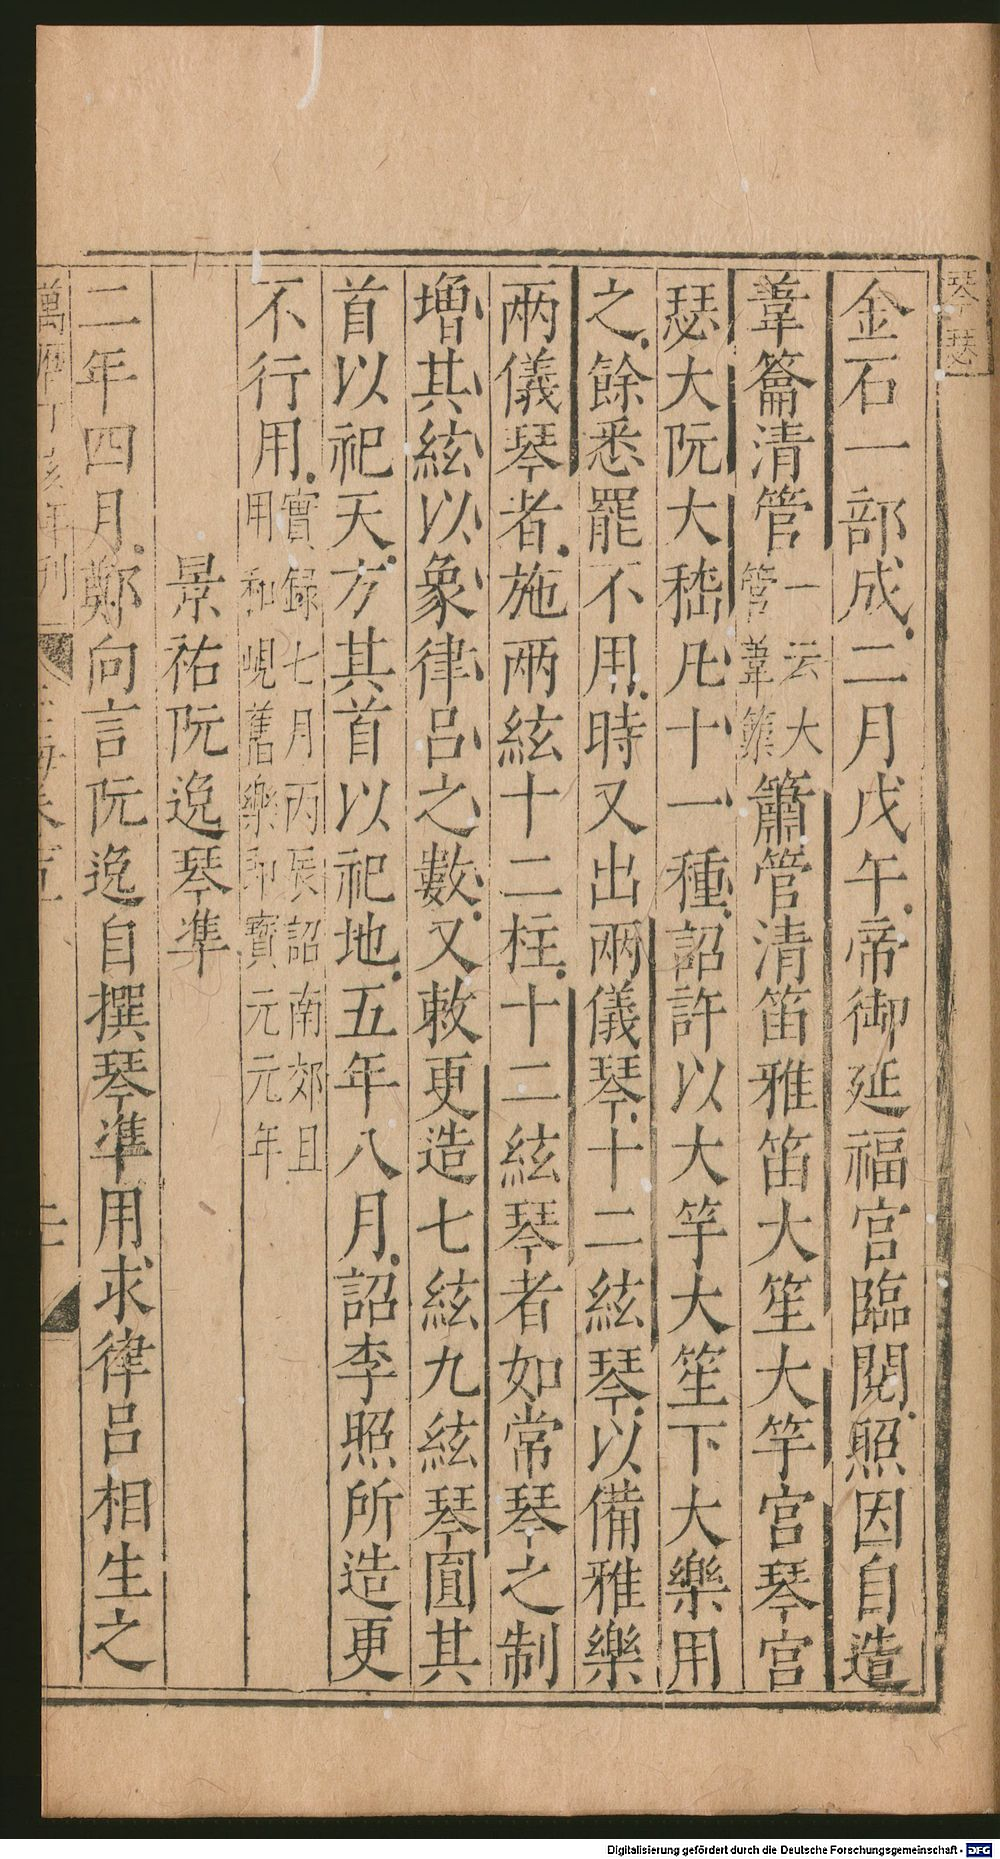 琴瑟
金石一部成二月戊午帝御延福宮臨閱照因自造
葦籥清管一云大管葦籥簫管清笛雅笛大笙大竽宮琴宮
瑟大阮大嵇凡十一種詔許以大竽大笙下大樂用
之餘悉罷不用時又出兩儀琴十二絃琴以備雅樂
兩儀琴者施兩絃十二柱十二絃琴者如常琴之制
增其絃以象律呂之數又敕更造七絃九絃琴圓其
首以祀天方其首以祀地五年八月詔李照所造更
不行用實錄七月丙辰詔南郊且用和峴舊樂即寶元元年
景祐阮逸琴準
二年四月鄭向言阮逸自撰琴準用求律呂相生之
萬曆丁亥年刊
玉海卷百
Digitalisierung gefördert durch die Deutsche Forschungsgemeinschaft - DFG